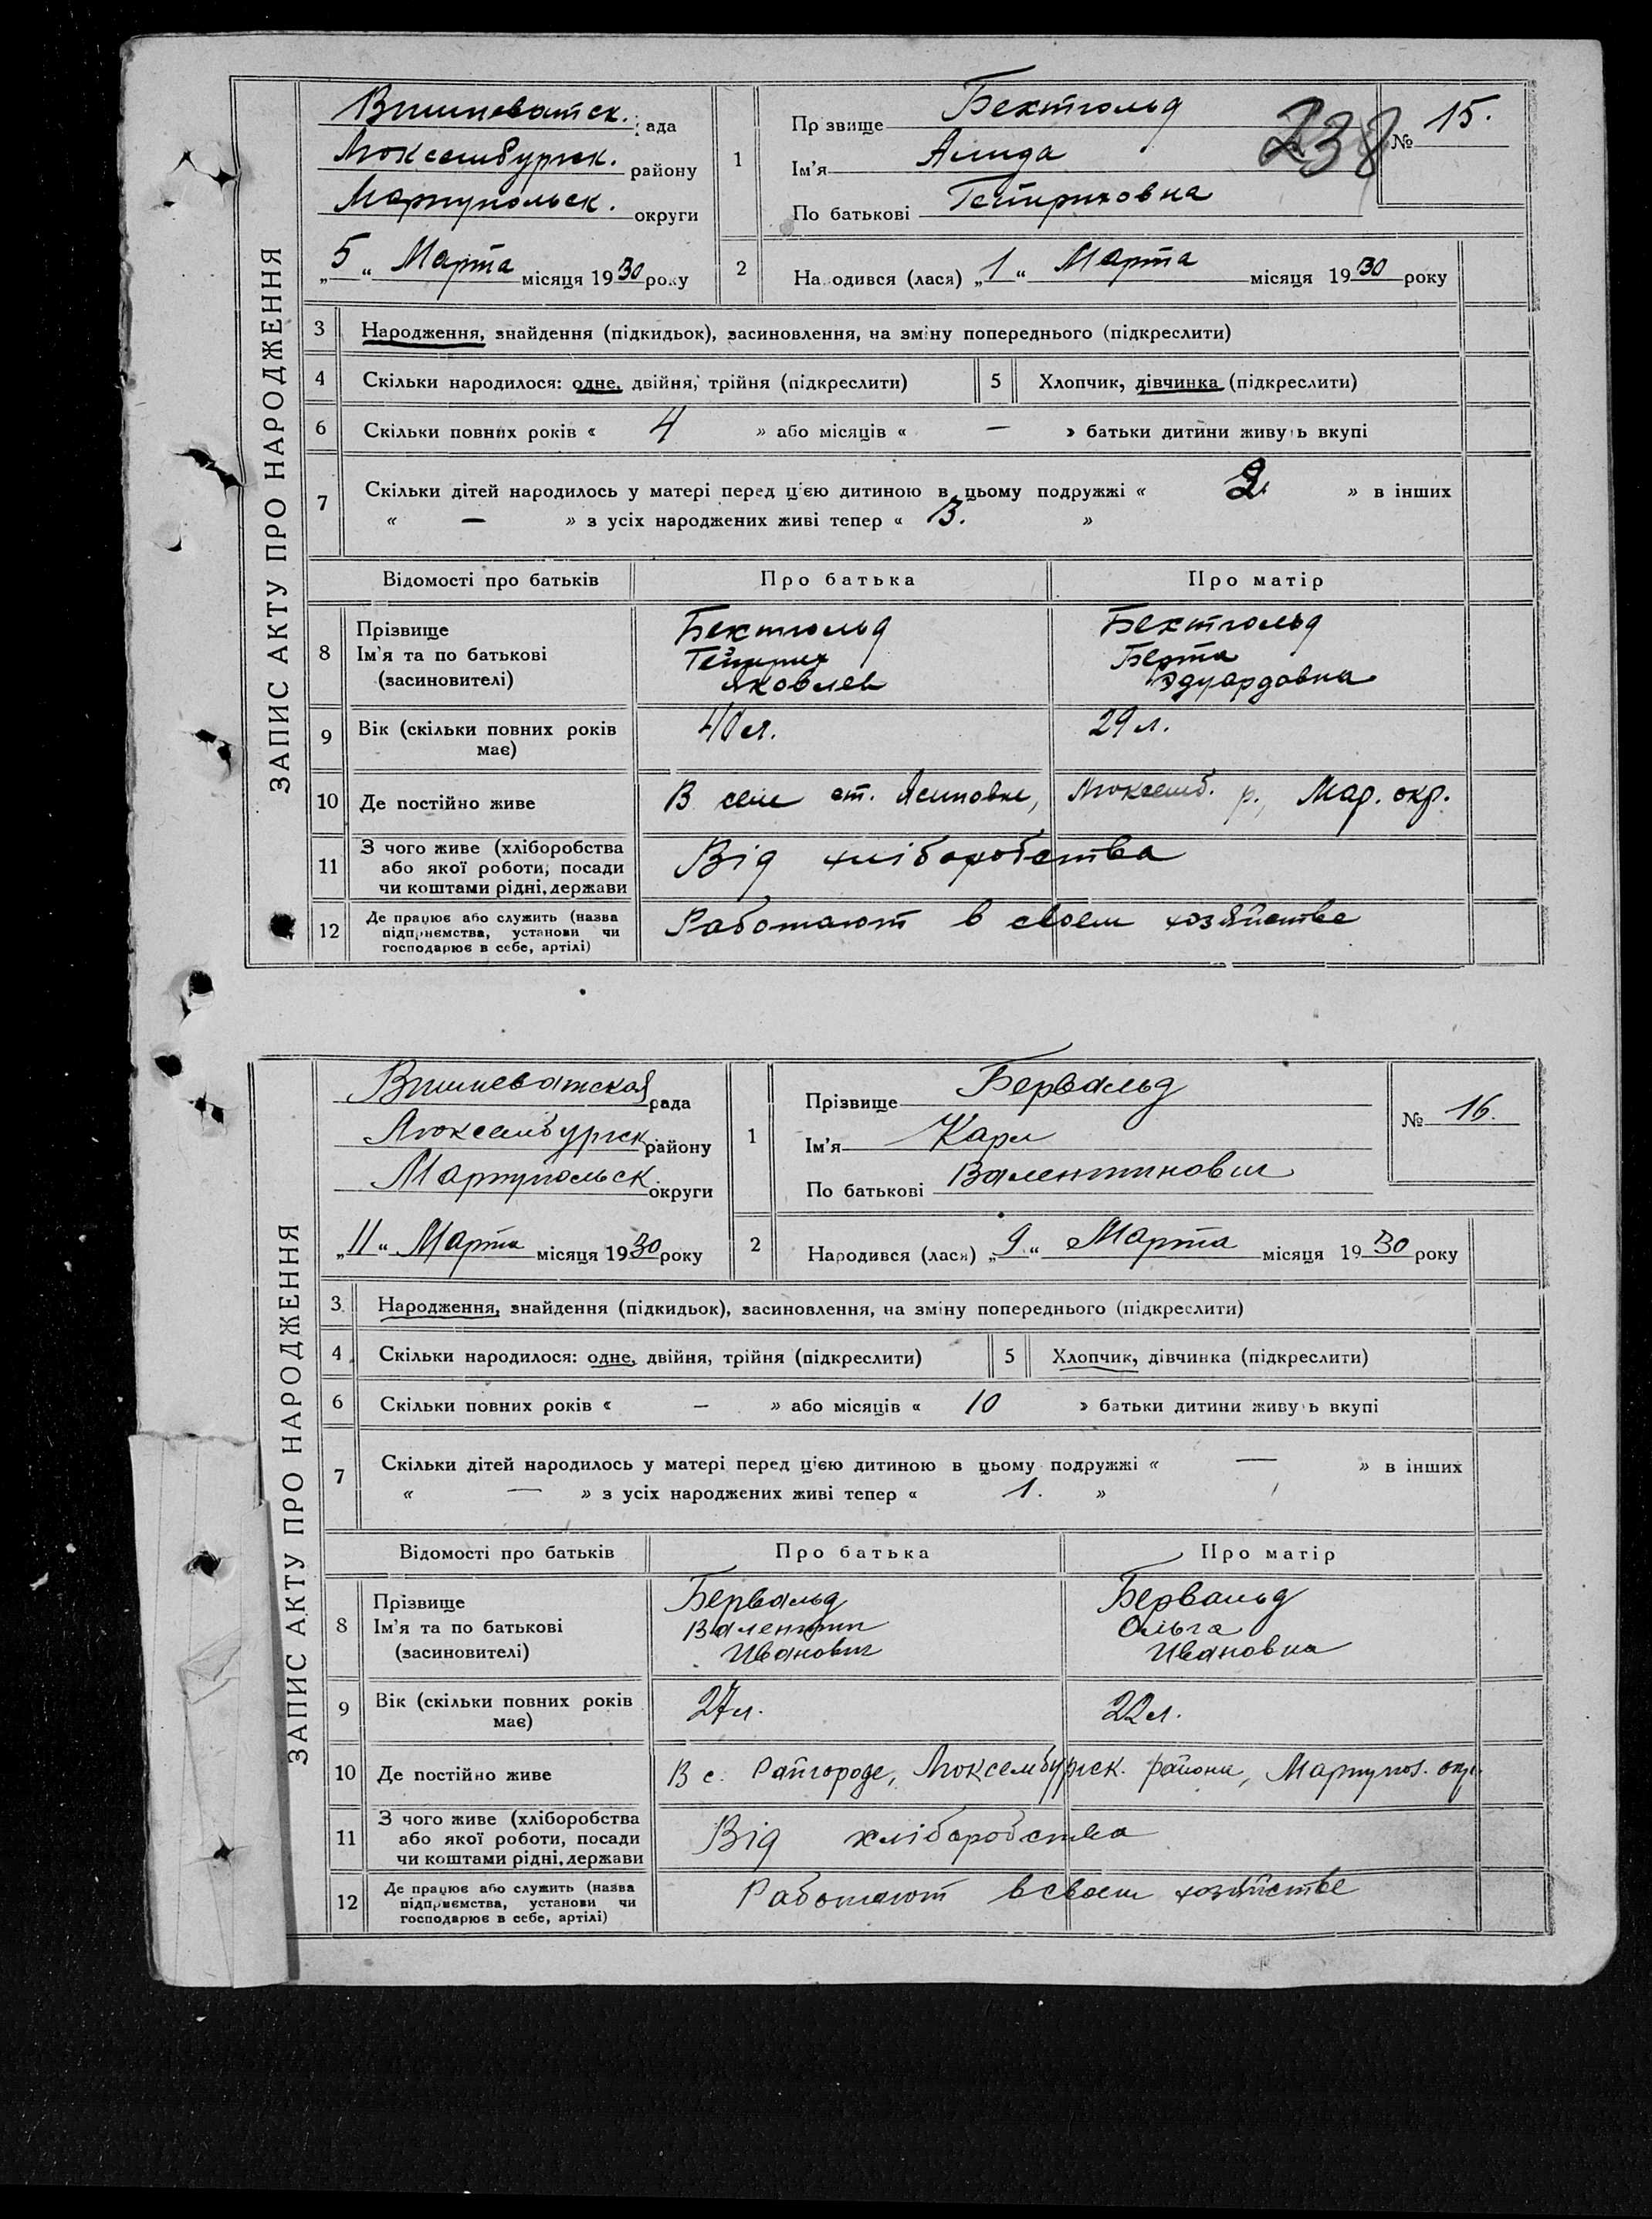 ЗАПИС АКТУ ПРО НАРОДЖЕННЯ
Вишневатск. рада
Люксембургск. району
Мариупольск. округи
„5“ Марта місяця 1930 року
1
Прізвище Бектгольд
Ім'я Алида
По батькові Гейнриховна
238
№ 15.
2
Народився (лася) „1“ Марта місяця 1930 року
3 Народження, знайдення (підкидьок), засиновлення, на зміну попереднього (підкреслити)
4 Скільки народилося: одне, двійня, трійня (підкреслити) 5 Хлопчик, дівчинка (підкреслити)
6 Скільки повних років « 4 » або місяців « — » батьки дитини живуть вкупі
7 Скільки дітей народилось у матері перед ц'єю дитиною в цьому подружжі « 2 » в інших
« — » з усіх народжених живі тепер « 3. »
Відомості про батьків Про батька Про матір
8 Прізвище Ім'я та по батькові (засиновителі)
Бектгольд Гейнрих Яковлев
Бектгольд Берта Эдуардовна
9 Вік (скільки повних років має) 40 л. 29 л.
10 Де постійно живе В селе ст. Люксемб. р., Мар. окр.
11 З чого живе (хліборобства або якої роботи, посади чи коштами рідні, держави Від хліборобства
12 Де працює або служить (назва підприємства, установи чи господарює в себе, артілі) Работают в своем хозяйстве
ЗАПИС АКТУ ПРО НАРОДЖЕННЯ
Вишневатская рада
Люксембургск. району
Мариупольск. округи
„11“ Марта місяця 1930 року
1
Прізвище Бервальд
Ім'я Карл
По батькові Валентинович
№ 16.
2
Народився (лася) „9“ Марта місяця 1930 року
3 Народження, знайдення (підкидьок), засиновлення, на зміну попереднього (підкреслити)
4 Скільки народилося: одне, двійня, трійня (підкреслити) 5 Хлопчик, дівчинка (підкреслити)
6 Скільки повних років « — » або місяців « 10 » батьки дитини живуть вкупі
7 Скільки дітей народилось у матері перед ц'єю дитиною в цьому подружжі « — » в інших
« — » з усіх народжених живі тепер « 1. »
Відомості про батьків Про батька Про матір
8 Прізвище Ім'я та по батькові (засиновителі)
Бервальд Валентин Иванович
Бервальд Ольга Ивановна
9 Вік (скільки повних років має) 27 л. 22 л.
10 Де постійно живе В с. Райгороде, Люксембургск. района, Мариупол. окр.
11 З чого живе (хліборобства або якої роботи, посади чи коштами рідні, держави Від хліборобства
12 Де працює або служить (назва підприємства, установи чи господарює в себе, артілі) Работают в своем хозяйстве